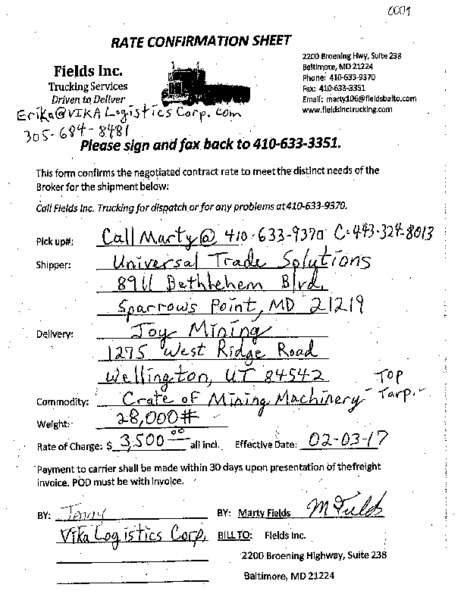 0001
RATE CONFIRMATION SHEET
Fields Inc.
Trucking Services
Driven to Deliver
2200 Broening Hwy, Suite 238
Baltimore, MD 21224
Phone: 410-633-9370
Fax: 410-633-3351
Email: marty106@fieldsbalto.com
www.fieldsinctrucking.com
Erika@VIKALogisticsCorp.com
305-684-8481
Please sign and fax back to 410-633-3351.
This form confirms the negotiated contract rate to meet the distinct needs of the
Broker for the shipment below:
Call Fields Inc. Trucking for dispatch or for any problems at 410-633-9370.
Pick up#: Call Marty@ 410-633-9370 C-443-324-8013
Shipper: Universal Trade Solutions
8911 Bethlehem Blvd.
Sparrows Point, MD 21219
Delivery: Joy Mining
1275 West Ridge Road
Wellington, UT 84542
Commodity: Crate of Mining Machinery - Top Tarp.-
Weight: 28,000#
Rate of Charge: $ 3,500.00 all incl. Effective Date: 02-03-17
Payment to carrier shall be made within 30 days upon presentation of the freight
invoice. POD must be with invoice.
BY: BY: Marty Fields M Fields
Vika Logistics Corp. BILL TO: Fields Inc.
2200 Broening Highway, Suite 238
Baltimore, MD 21224